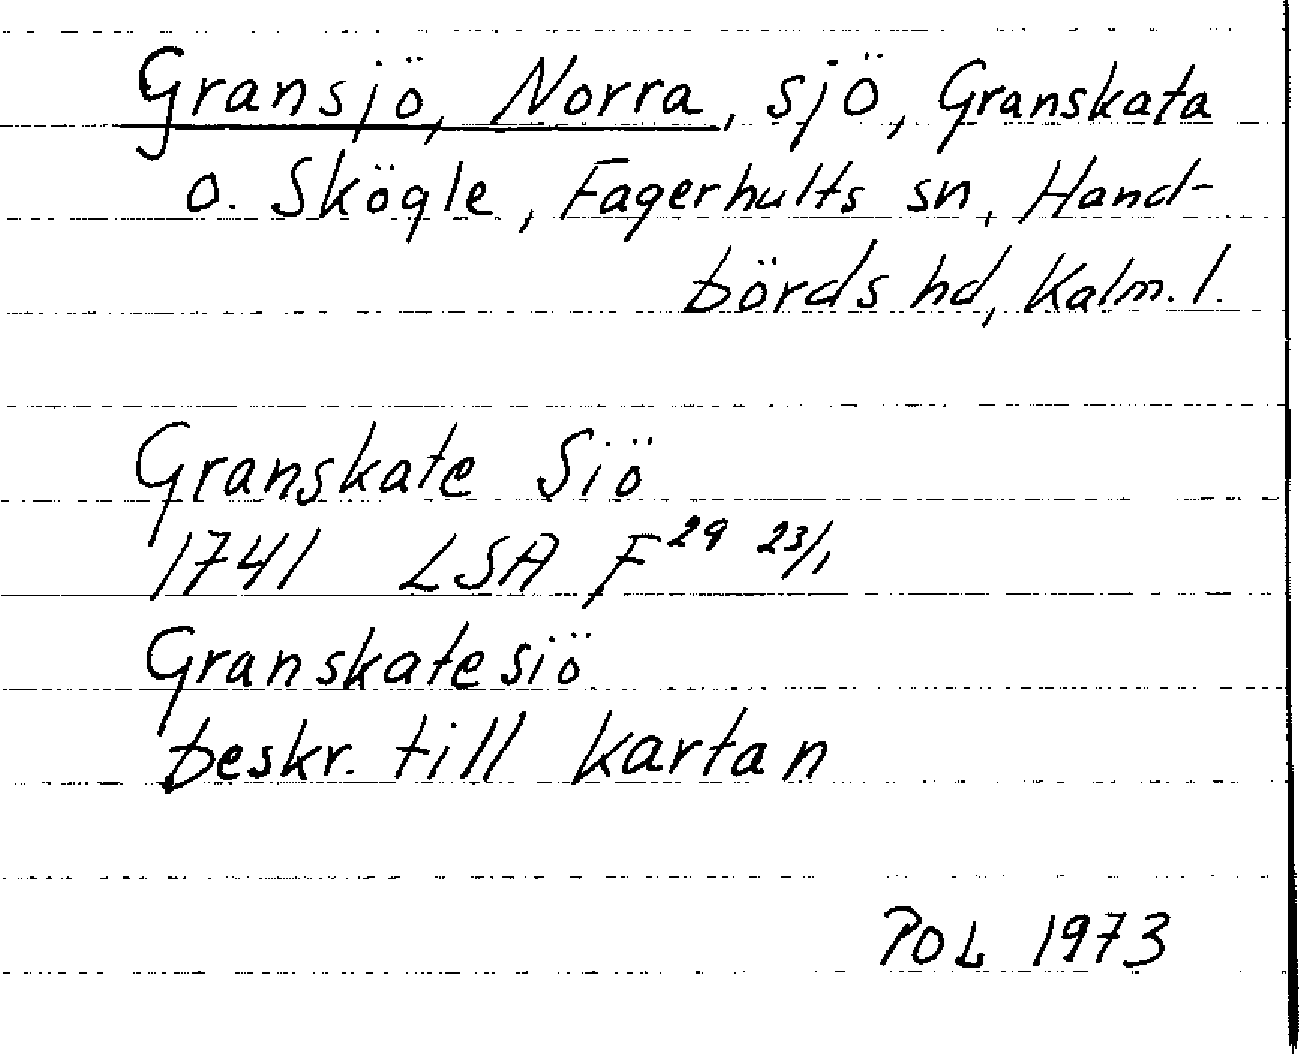 Gransjö, Norra, sjö, Granskata
o. Skögle, Fagerhults sn, Hand-
börds hd, Kalm. l.
Granskate Siö
1741 LSA F29 23/1
Granskatesiö
beskr. till kartan
POL 1973